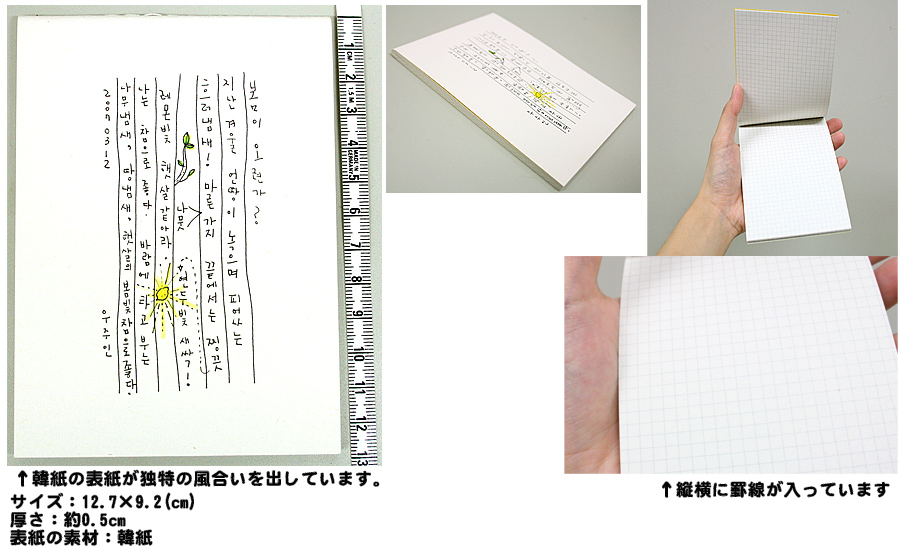 봄이 오련가?
지난 겨울 언땅이 녹으며 피어나는
흙냄새! 마른가지 끝에서는 찡긋
나뭇 연두빛 새싹!
레몬빛 햇살 같아라.
나는 참으로 좋다. 바람에 타고 부는
나무냄새, 땅냄새, 햇살의 봄빛 참으로 좋다.
2009 0312 우주인
1 CM
2
1.5 M
3
4
MADE IN GERMANY
5
6
7
8
9
10
11
12
13
↑韓紙の表紙が独特の風合いを出しています。
サイズ：12.7×9.2(cm)
厚さ：約0.5cm
表紙の素材：韓紙
↑縦横に罫線が入っています